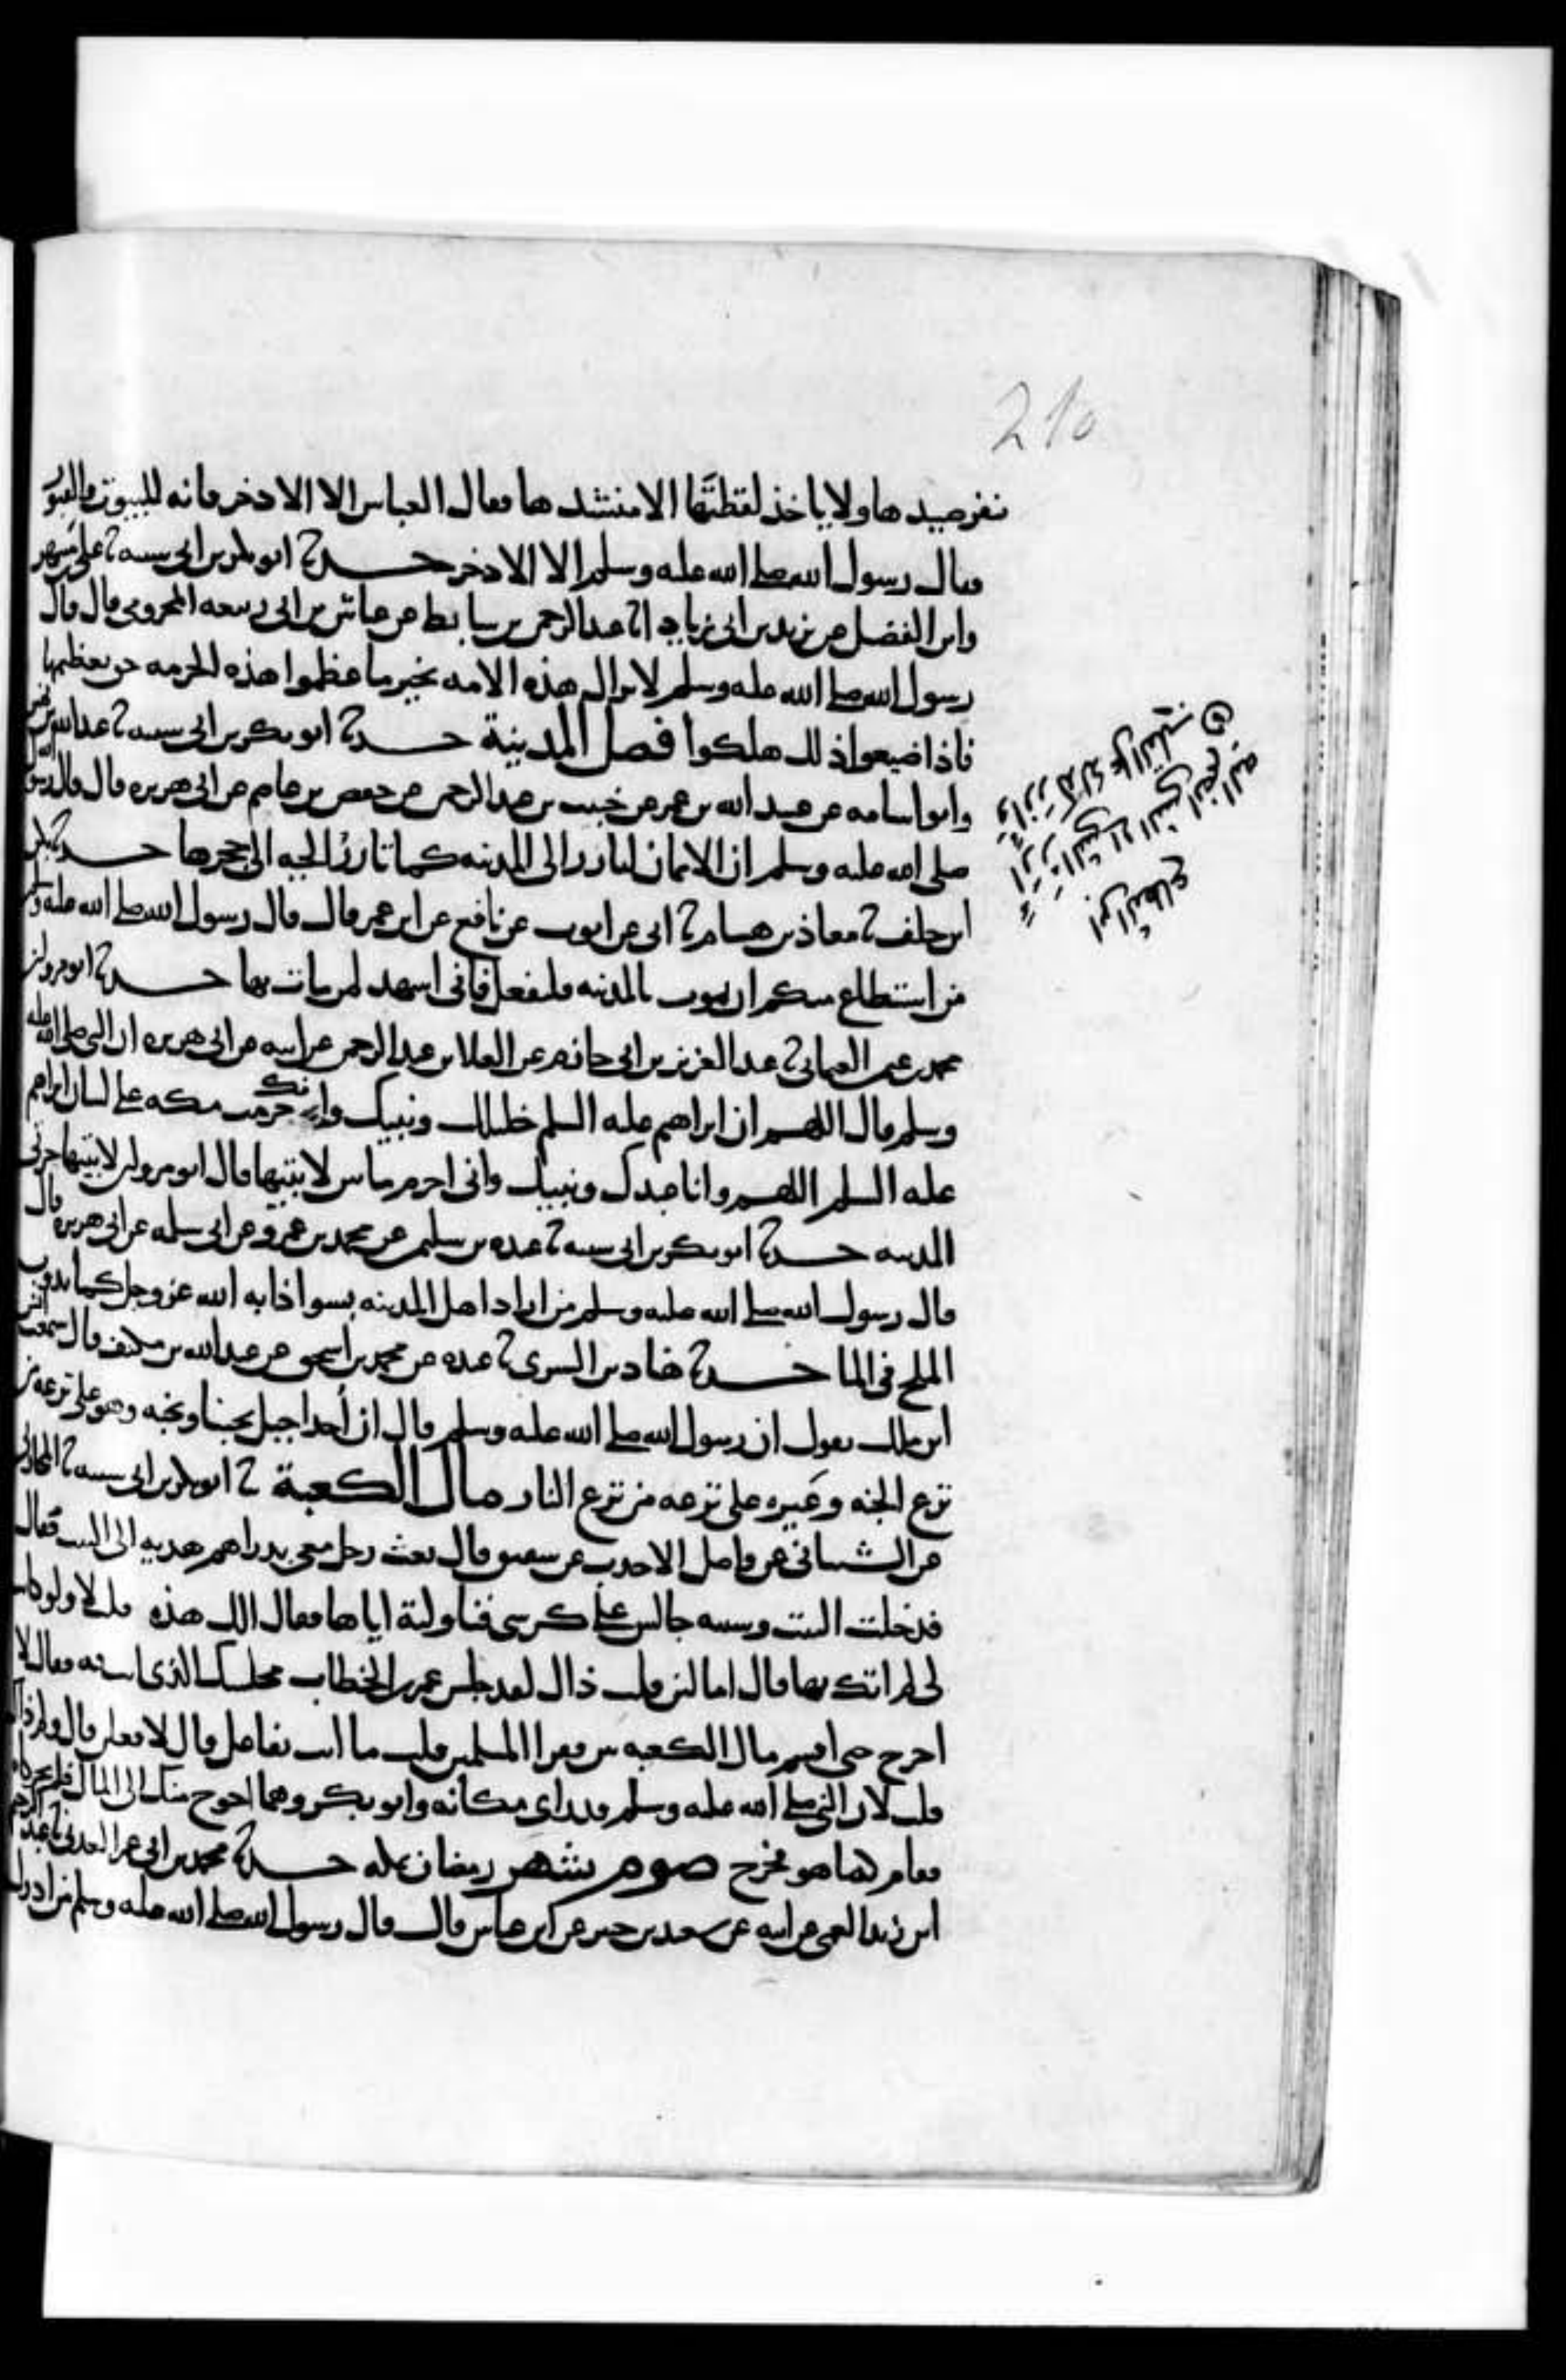 210
ينفر صيدها ولا ياخذ لقطتها الا منشدها فقال العباس الا الاذخر فانه للبيوت والقبور
فقال رسول الله صلى الله عليه وسلم الا الاذخر حدثنا ابو بكر بن ابي شيبة ثنا علي بن مسهر
وابن الفضيل عن يزيد بن ابي زياد انا عبد الرحمن بن سابط عن عياش بن ابي ربيعه المخزومي قال قال
رسول الله صلى الله عليه وسلم لا تزال هذه الامه بخير ما عظموا هذه الحرمه حق تعظيمها
فاذا ضيعوا ذلك هلكوا فضل المدينة حدثنا ابو بكر بن ابي شيبه ثنا عبد الله بن نمير
وابو اسامه عن عبيد الله بن عمر عن خبيب بن عبد الرحمن عن حفص بن عاصم عن ابي هريره قال قال رسول الله
صلى الله عليه وسلم ان الايمان ليارز الى المدينه كما تارز الحيه الى جحرها حدثنا بكر
ابن خلف ثنا معاذ بن هشام ثنا ابي عن ايوب عن نافع عن ابن عمر قال قال رسول الله صلى الله عليه وسلم
من استطاع منكم ان يموت بالمدينه فليفعل فاني اشهد لمن مات بها حدثنا ابو مروان
محمد بن عثمان العثماني ثنا عبد العزيز بن ابي حازم عن العلا بن عبد الرحمن عن ابيه عن ابي هريره ان النبي صلى الله عليه
وسلم قال اللهم ان ابراهيم عليه السلم خليلك ونبيك وانك حرمت مكه على لسان ابراهيم
عليه السلم اللهم وانا عبدك ونبيك واني احرم ما بين لابتيها قال ابو مروان لابتيها حرتي
المدينه حدثنا ابو بكر بن ابي شيبه ثنا عبده بن سليمن عن محمد بن عمرو عن ابي سلمه عن ابي هريره قال
قال رسول الله صلى الله عليه وسلم من اراد اهل المدينه بسو اذابه الله عز وجل كما يذوب
الملح في الما حدثنا هناد بن السري ثنا عبده عن محمد بن اسحق عن عبد الله بن مكنف قال سمعت انس
ابن ملك يقول ان رسول الله صلى الله عليه وسلم قال ان أحدا جبل يحبنا ونحبه وهو على ترعه من
ترع الجنه وعير على ترعه من ترع النار مال الكعبة ثنا ابو بكر بن ابي شيبه ثنا المحاربي
عن الشيباني عن واصل الاحدب عن شقيق قال بعث رجل معي بدراهم هديه الى البيت فقال
فدخلت البيت وشيبه جالس على كرسي فناولته اياها فقال الك هذه قلت لا ولو كانت
لي لم اتك بها قال اما لئن قلت ذاك لقد جلس عمر بن الخطاب مجلسك الذي فقال لا
اخرج حتى اقسم مال الكعبه بين فقرا المسلمين قلت ما انت بفاعل قال لافعلن قال ولم ذاك
قلت لان النبي صلى الله عليه وسلم قد راى مكانه وابو بكر وهما احوج منك الى المال فلم يحركاه
فقام كما هو فخرج صوم شهر رمضان بمكه حدثنا محمد بن ابي عمر العدني ثنا عبد الرحيم
ابن زيد العمي عن ابيه عن سعيد بن جبير عن ابن عباس قال قال رسول الله صلى الله عليه وسلم من ادرك